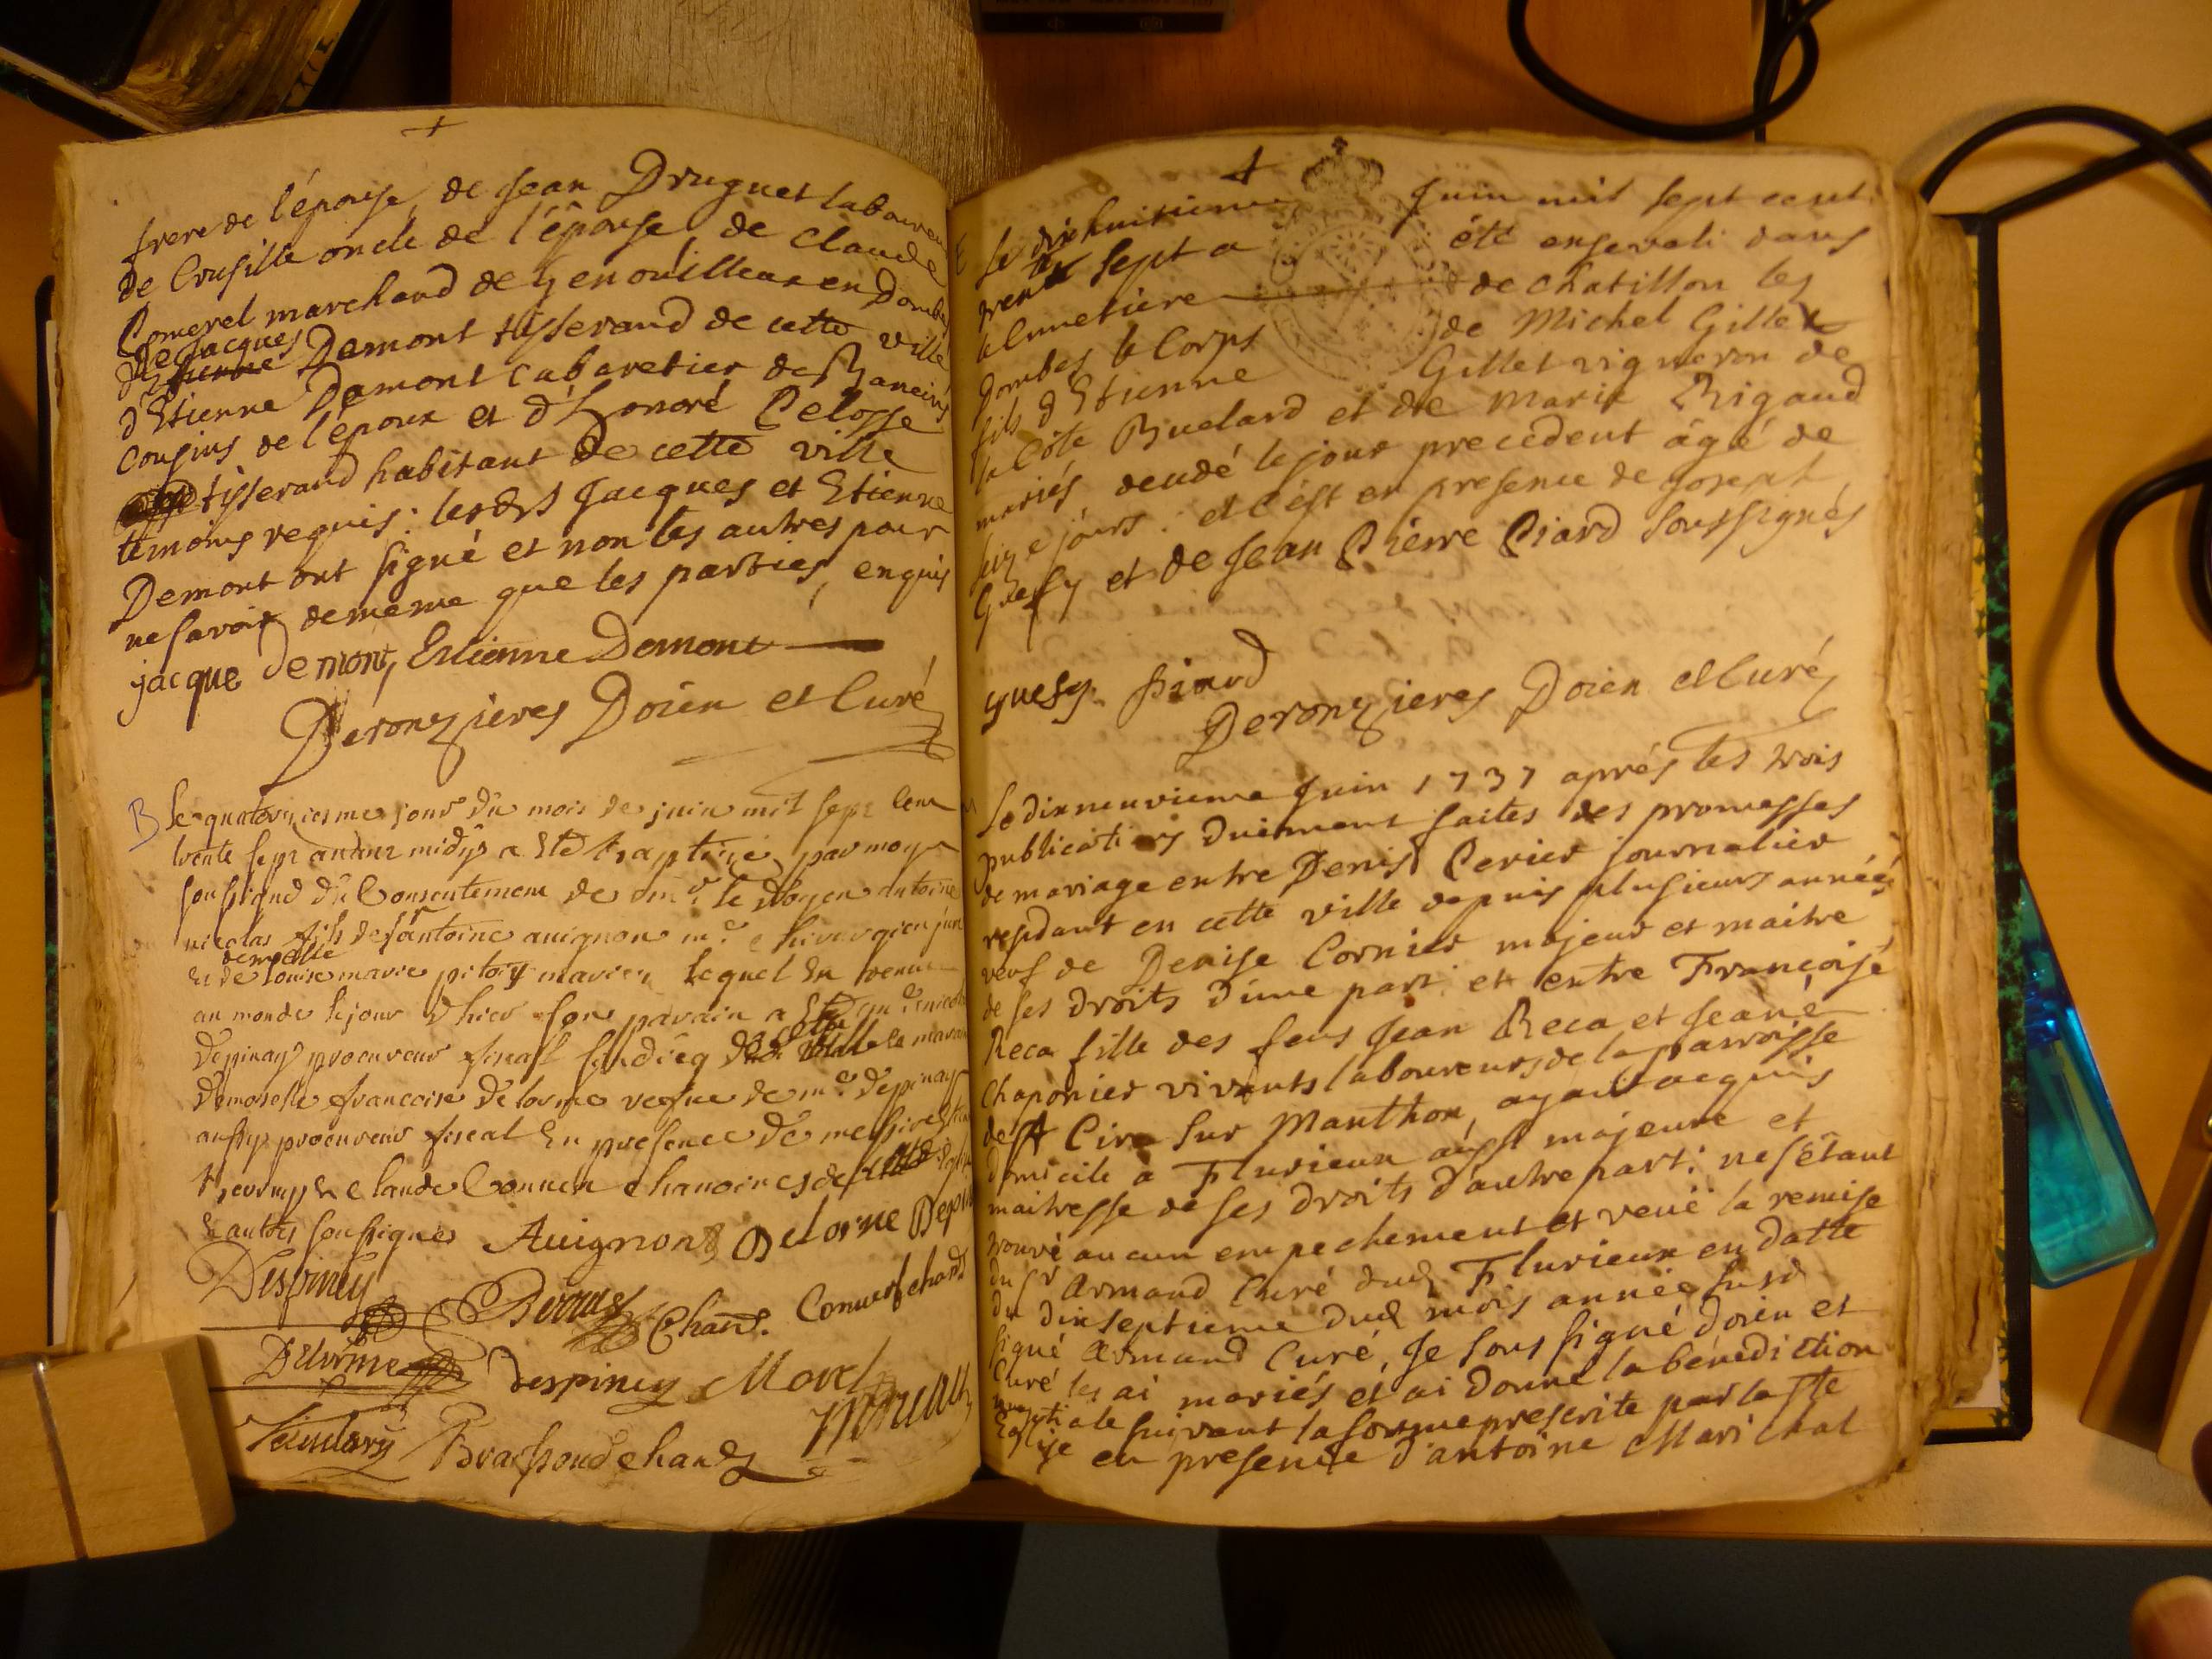 frere de l'épouse, de Jean Druguet laboureur
de Crusille oncle de l'épouse de Claude
Comerel marchand de Genouilleux en Dombes
de Jacques
Demont tisserand de cette ville
d'Etienne Damont cabaretier de Baneins
cousins de l'époux et d'honoré Pelosse
tisserand habitant de cette ville
temoins requis: lesdts Jacques et Etienne
Demont ont signé et non les autres pour
ne savoir de meme que les parties, enquis
jacque demont, Estienne Demont
Deronzieres Doien et Curé
B Le quatorziesme jour du mois de juin mil sept cent
trente sept avant midy a Eté baptisé par moy
soussigné du Consentement de mr le doyen antoine
nicolas fils de sr antoine auignon me chirurgien juré
demoelle
Et de louise marie pitoy mariez lequel Est venu
au monde le jour d'hier son parain a Eté me nicolas
Depinay procureur fiscal scindicq de cette ville la maraine
Demoiselle francoise Delorme vefue de me depinay
aussy procureur fiscal En presence de messires
Claude Connen chanoines de
Et autres soussignes Auignon Delorme Depi
Despiney Chan. chan
Delorme despiney Morel
chan
+
E Le dixhuitieme Juin mil sept cent
trente sept a été enseveli dans
le Cimetiere de chatillon les
Dombes le Corps de Michel Gillet
fils d'Etienne Gillet vigneron de
la Côte Buelard et de Marie Rigaud
mariés decedé le jour precedent âgé de
seize jours: et c'est en presence de Joseph
Guesy et de Jean Pierre Piard soussignés
guesy. piard
Deronzieres Doien et Curé
M Le dixneuvieme Juin 1737 aprés les trois
publications duement faites des promesses
de mariage entre Denis Perier journalier
residant en cette ville depuis plusieurs années
veuf de Denise Cornier majeur et maitre
de ses droits d'une part: et entre Françoise
Reca fille des feus Jean Reca et Jeane
Chaponier vivants laboureurs de la parroisse
de st Cire sur Manthon, ayant acquis
domicile a Flurieux aussi majeure et
maitresse de ses droits d'autre part: ne s'étant
trouvé aucun empechement et veüe la remise
du sr Armand Curé dud Flurieux en datte
du dixseptieme dud mois année susd
signé Armand Curé, Je sous signé doien et
Curé les ai mariés et ai donné la bénédiction
nuptiale suivant la forme prescrite par la ste
Eglise en presence d'antoine Marichal